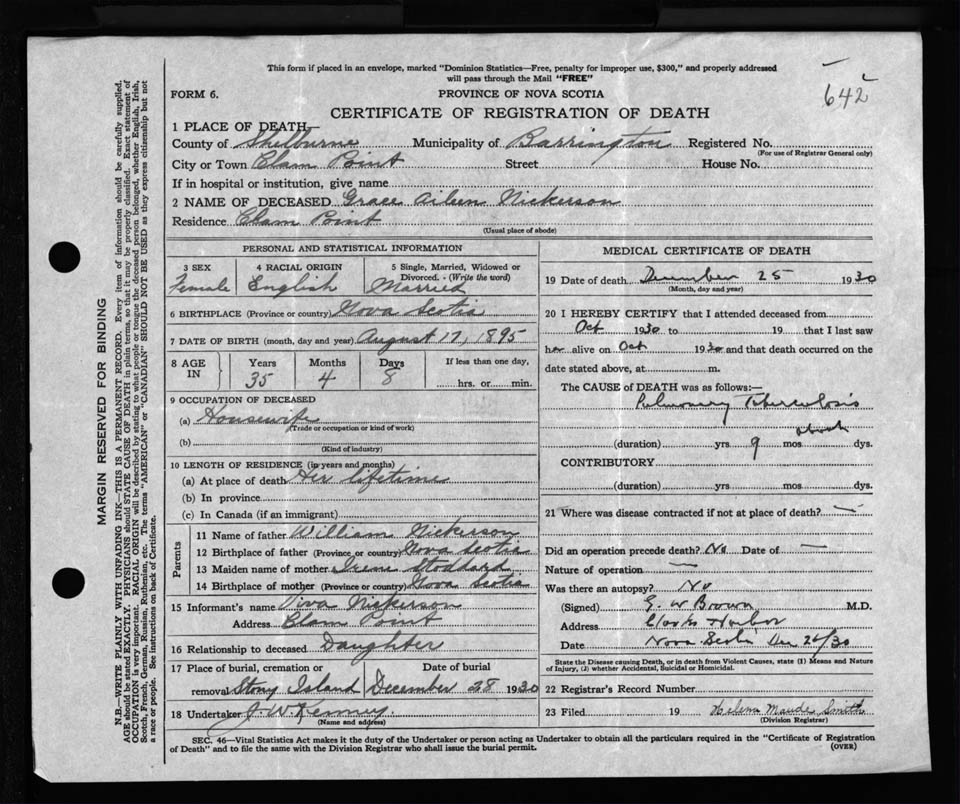 This form if placed in an envelope, marked "Dominion Statistics—Free, penalty for improper use, $300," and properly addressed
will pass through the Mail "FREE"
642
FORM 6. PROVINCE OF NOVA SCOTIA
CERTIFICATE OF REGISTRATION OF DEATH
1 PLACE OF DEATH
County of Shelburne Municipality of Barrington Registered No.
(For use of Registrar General only)
City or Town Clam Point Street House No.
If in hospital or institution, give name
2 NAME OF DECEASED Grace Aileen Nickerson
Residence Clam Point
(Usual place of abode)
PERSONAL AND STATISTICAL INFORMATION
3 SEX 4 RACIAL ORIGIN 5 Single, Married, Widowed or Divorced. (Write the word)
Female English Married
6 BIRTHPLACE (Province or country) Nova Scotia
7 DATE OF BIRTH (month, day and year) August 17, 1895
8 AGE IN Years Months Days If less than one day,
35 4 8 hrs. or min.
9 OCCUPATION OF DECEASED
(a) Housewife
(Trade or occupation or kind of work)
(b)
(Kind of industry)
10 LENGTH OF RESIDENCE (in years and months)
(a) At place of death Her lifetime
(b) In province
(c) In Canada (if an immigrant)
Parents
11 Name of father William Nickerson
12 Birthplace of father (Province or country) Nova Scotia
13 Maiden name of mother Irene Stoddard
14 Birthplace of mother (Province or country) Nova Scotia
15 Informant's name Viva Nickerson
Address Clam Point
16 Relationship to deceased Daughter
17 Place of burial, cremation or removal Stony Island Date of burial December 28 1930
18 Undertaker J. W. Kenney
(Name and address)
MEDICAL CERTIFICATE OF DEATH
19 Date of death December 25 1930
(Month, day and year)
20 I HEREBY CERTIFY that I attended deceased from
Oct 1930 to 19 that I last saw
her alive on Oct 1930 and that death occurred on the
date stated above, at m.
The CAUSE of DEATH was as follows:—
Pulmonary Tuberculosis
about
(duration) yrs 9 mos dys.
CONTRIBUTORY
(duration) yrs. mos. dys.
21 Where was disease contracted if not at place of death? —
Did an operation precede death? No Date of —
Nature of operation —
Was there an autopsy? No
(Signed) E. W Brown M.D.
Address Clarks Harbor
Date Nova Scotia Dec 26/30
State the Disease causing Death, or in death from Violent Causes, state (1) Means and Nature
of Injury, (2) whether Accidental, Suicidal or Homicidal.
22 Registrar's Record Number
23 Filed 19 Helena Maude Smith
(Division Registrar)
SEC. 46—Vital Statistics Act makes it the duty of the Undertaker or person acting as Undertaker to obtain all the particulars required in the "Certificate of Registration
of Death" and to file the same with the Division Registrar who shall issue the burial permit. (OVER)
MARGIN RESERVED FOR BINDING
N.B.—WRITE PLAINLY WITH UNFADING INK—THIS IS A PERMANENT RECORD. Every item of information should be carefully supplied.
AGE should be stated EXACTLY. PHYSICIANS should STATE CAUSE OF DEATH in plain terms, so that it may be properly classified. Exact statement of
OCCUPATION is very important. RACIAL ORIGIN will be described by stating to what people or tongue the deceased person belonged, whether English, Irish,
Scotch, French, German, Russian, Ruthenian, etc. The terms "AMERICAN" or "CANADIAN" SHOULD NOT BE USED as they express citizenship but not
a race or people. See instructions on back of Certificate.